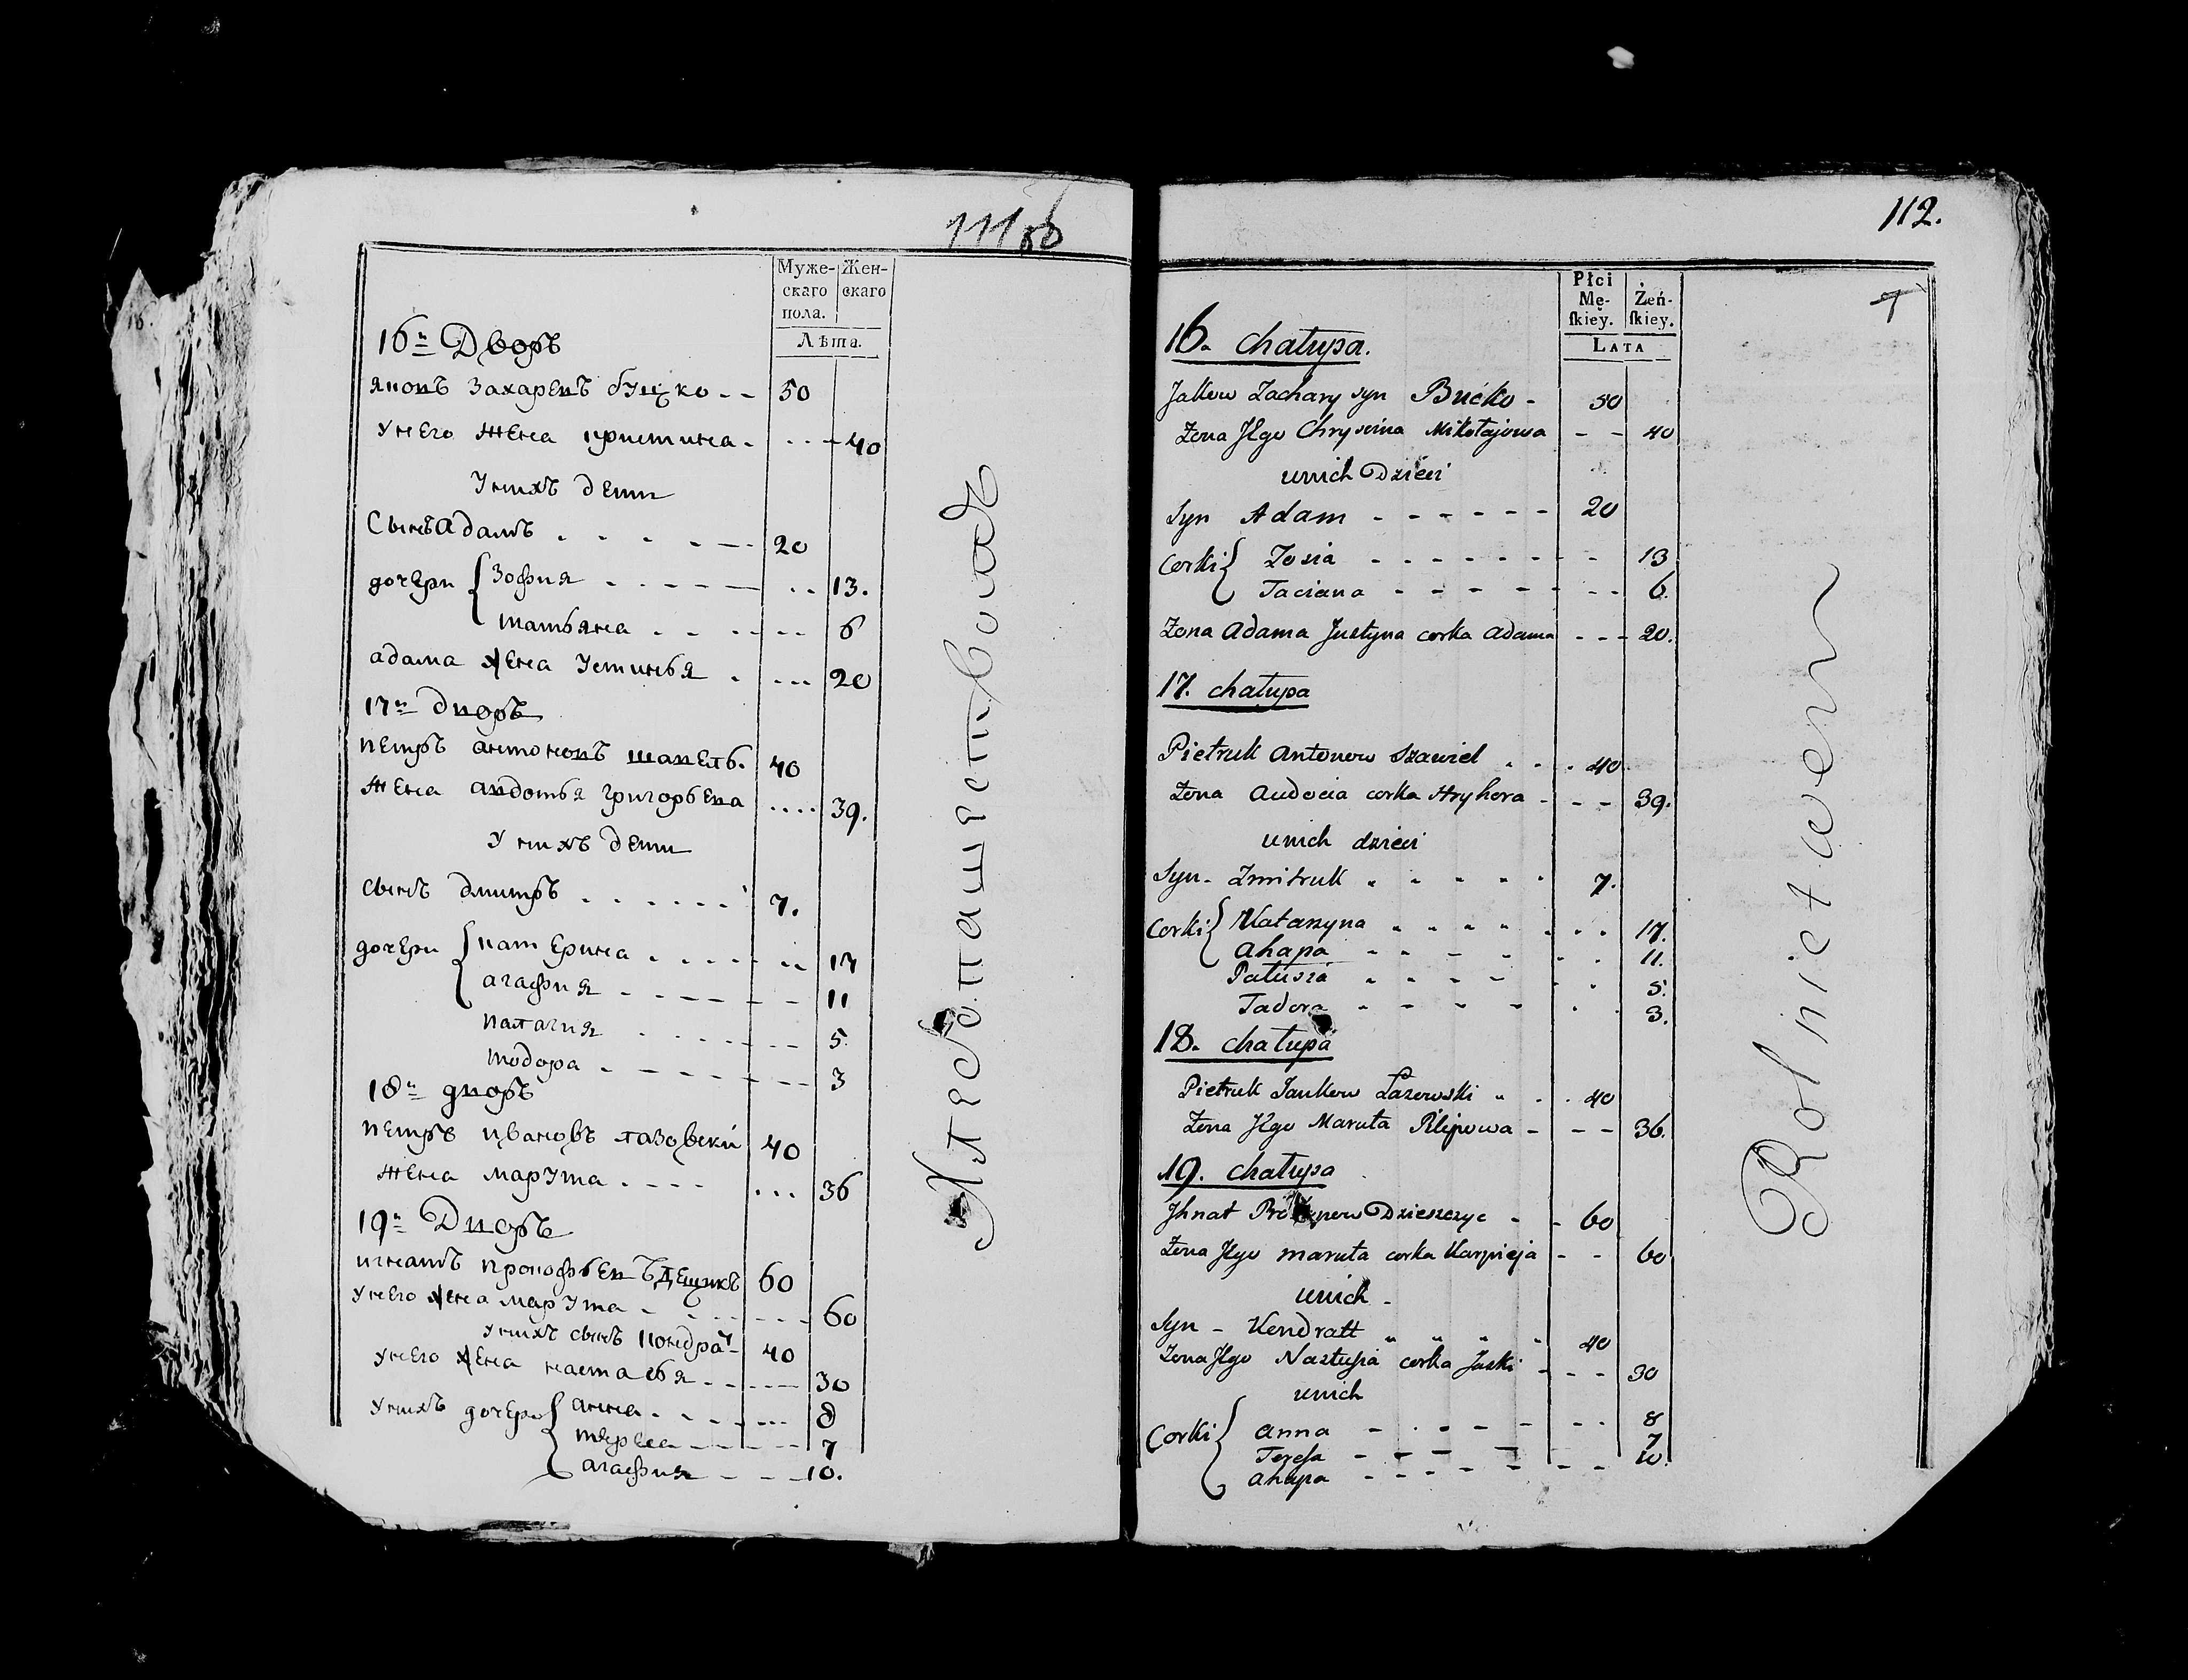 111 об
Муже-
скаго
пола.
Жен-
скаго
Лѣта.
16й Дворъ
яковъ Захаревъ буцко 50
у него жена кристина 40
У нихъ дети
Сынъ адамъ 20
дочери { Зофия 13.
татьяна 6
адама жена устинья 20
17й дворъ
петръ антоновъ шавель. 40
жена авдотья григорьева 39.
У нихъ дети
сынъ дмитръ 7.
дочери { катерина 17
агафия 11
палагия 5
тодора 3
18й дворъ
петръ ивановъ лазовский 40
жена марута 36
19й Дворъ
игнатъ прокофьевъ 60
у него жена марута 60
у нихъ сынъ кондрат 40
у него жена настасья 30
у нихъ дочери { анна 8
тереса 7
агафия 10.
Хлебопашествомъ
112.
Płci
Mę-
skiey.
Żeń-
skiey.
LATA
16. chałupa.
Jakow Zachary syn Bucko 50
Zona Jego Chryscina Mikołajowa 40
unich Dzieci
Syn Adam 20
Corki { Zosia 13
Taciana 6.
Zona Adama Justyna corka Adama 20.
17. chałupa
Pietruk Antonow Szawiel 40
Zona Audocia corka Hryhora 39.
unich dzieci
Syn Zmitruk 7.
Corki { Katarzyna 17.
Ahapa 11.
Pałusia 5.
Tadora 3.
18. chałupa
Pietruk Jankow Łazowski 40
Zona Jego Maruta Pilipowa 36.
19. chałupa
Jhnat Dzieszczyc 60
Zona Jego maruta corka Karpieja 60
unich
Syn Kondratt 40
Zona Jego Nastusia corka Jaski 30
unich
Corki { anna 8
Teressa 7
ahapa 10.
Rolnictwem